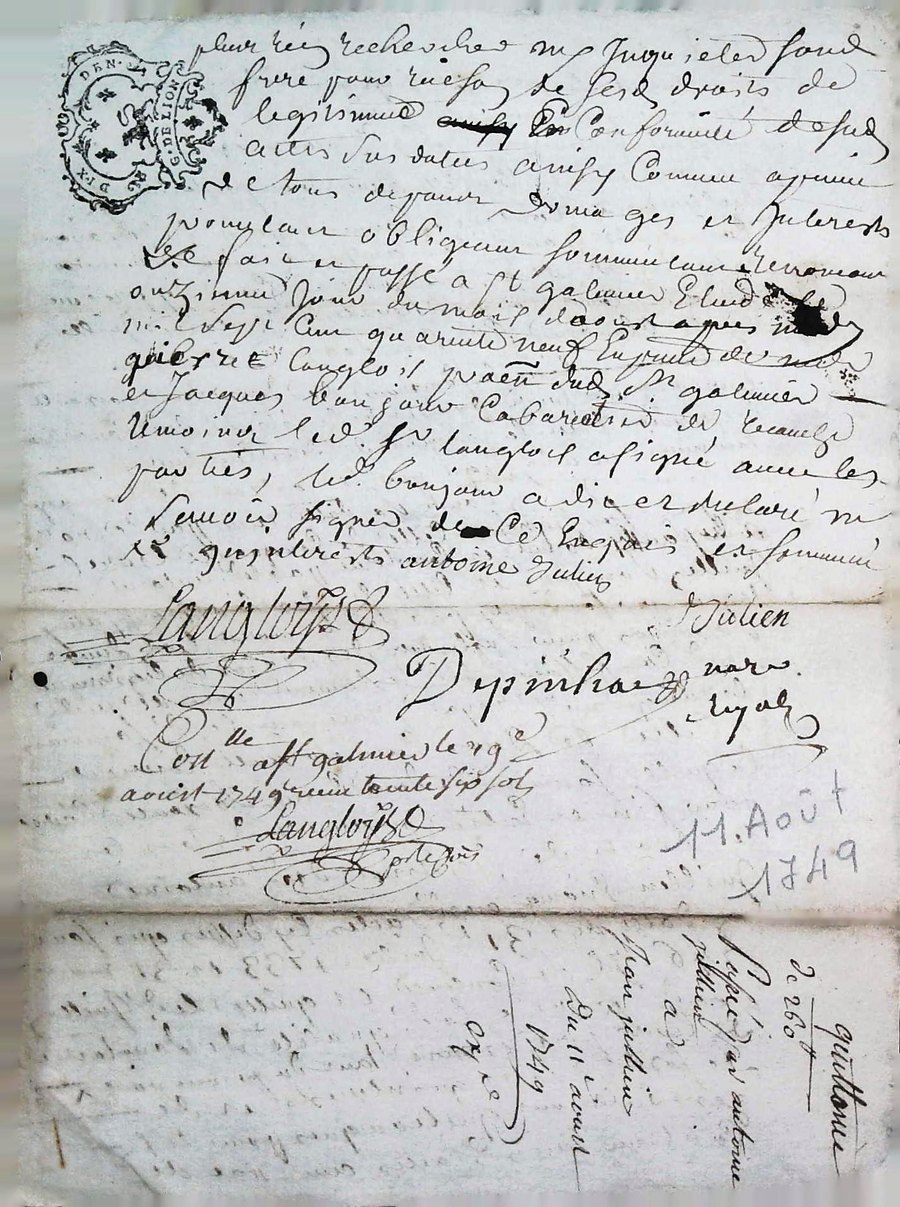 DEN. DIX
G. DE LION
plus rien rechercher ny Inquieter sond
frere pour raison de sesd droits de
legitime En Conformité desd
actes susdattés ainsy Comme a peine
de tous depans Domages et Interests
promettant obligeant soumettant Renonceant
fait et passé a St galmier Etude
onzieme Jour du mois daoust apres midy
mil sept cent quarante neuf En presence de
Langlois dud St galmier
et Jacques bonjour Cabaretier de
temoins led sr langlois a signé avec les
parties, led bonjour a dit et declaré ne
scavoir signer de Ce Enquis et sommé
antoine Julien
Langloys Julien
Depinhac nore
royal
Conlle a St galmier le 19e
aoust 1749 recu trente six sols
Langloys
11. Août
1749
quittance
de 260
Passé par antoine
jullien
a
Jean jullien
Du 11 aoust
1749